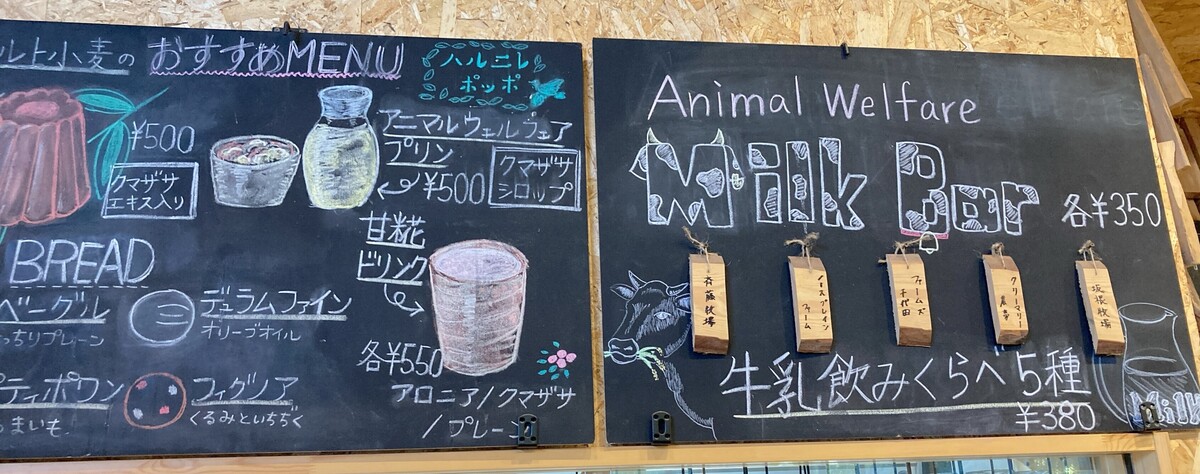 ルト小麦の おすすめMENU
ハルニレ
ポッポ
¥500
クマザサ
エキス入り
アニマルウェルフェア
プリン
¥500
クマザサ
シロップ
甘糀
ドリンク
各¥550
アロニア/クマザサ
/プレーン
BREAD
ベーグル
っちりプレーン
デュラムファイン
オリーブオイル
プティポワン
まいも
フィグノア
くるみといちぢく
Animal Welfare
Milk Bar
各¥350
斉藤牧場
ファームズ
千代田
クリーマリー
坂根牧場
牛乳飲みくらべ5種
¥380
Milk